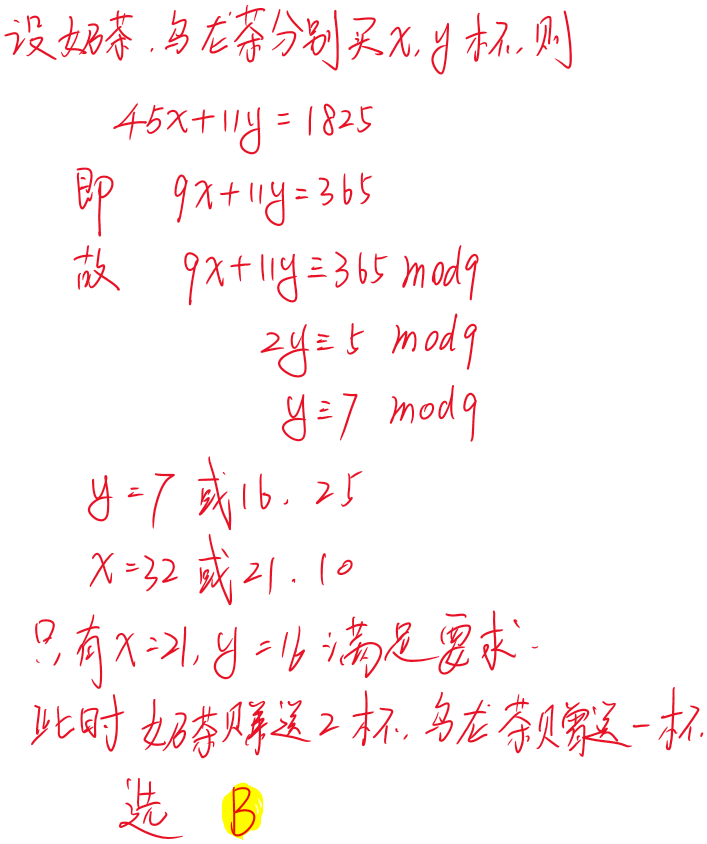 设奶茶、乌龙茶分别买x,y杯,则
45x+11y=1825
即 9x+11y=365
故 9x+11y≡365 mod9
2y≡5 mod9
y≡7 mod9
y=7或16、25
x=32或21、10
只有x=21,y=16满足要求.
此时奶茶赠送2杯,乌龙茶赠送一杯.
选 B